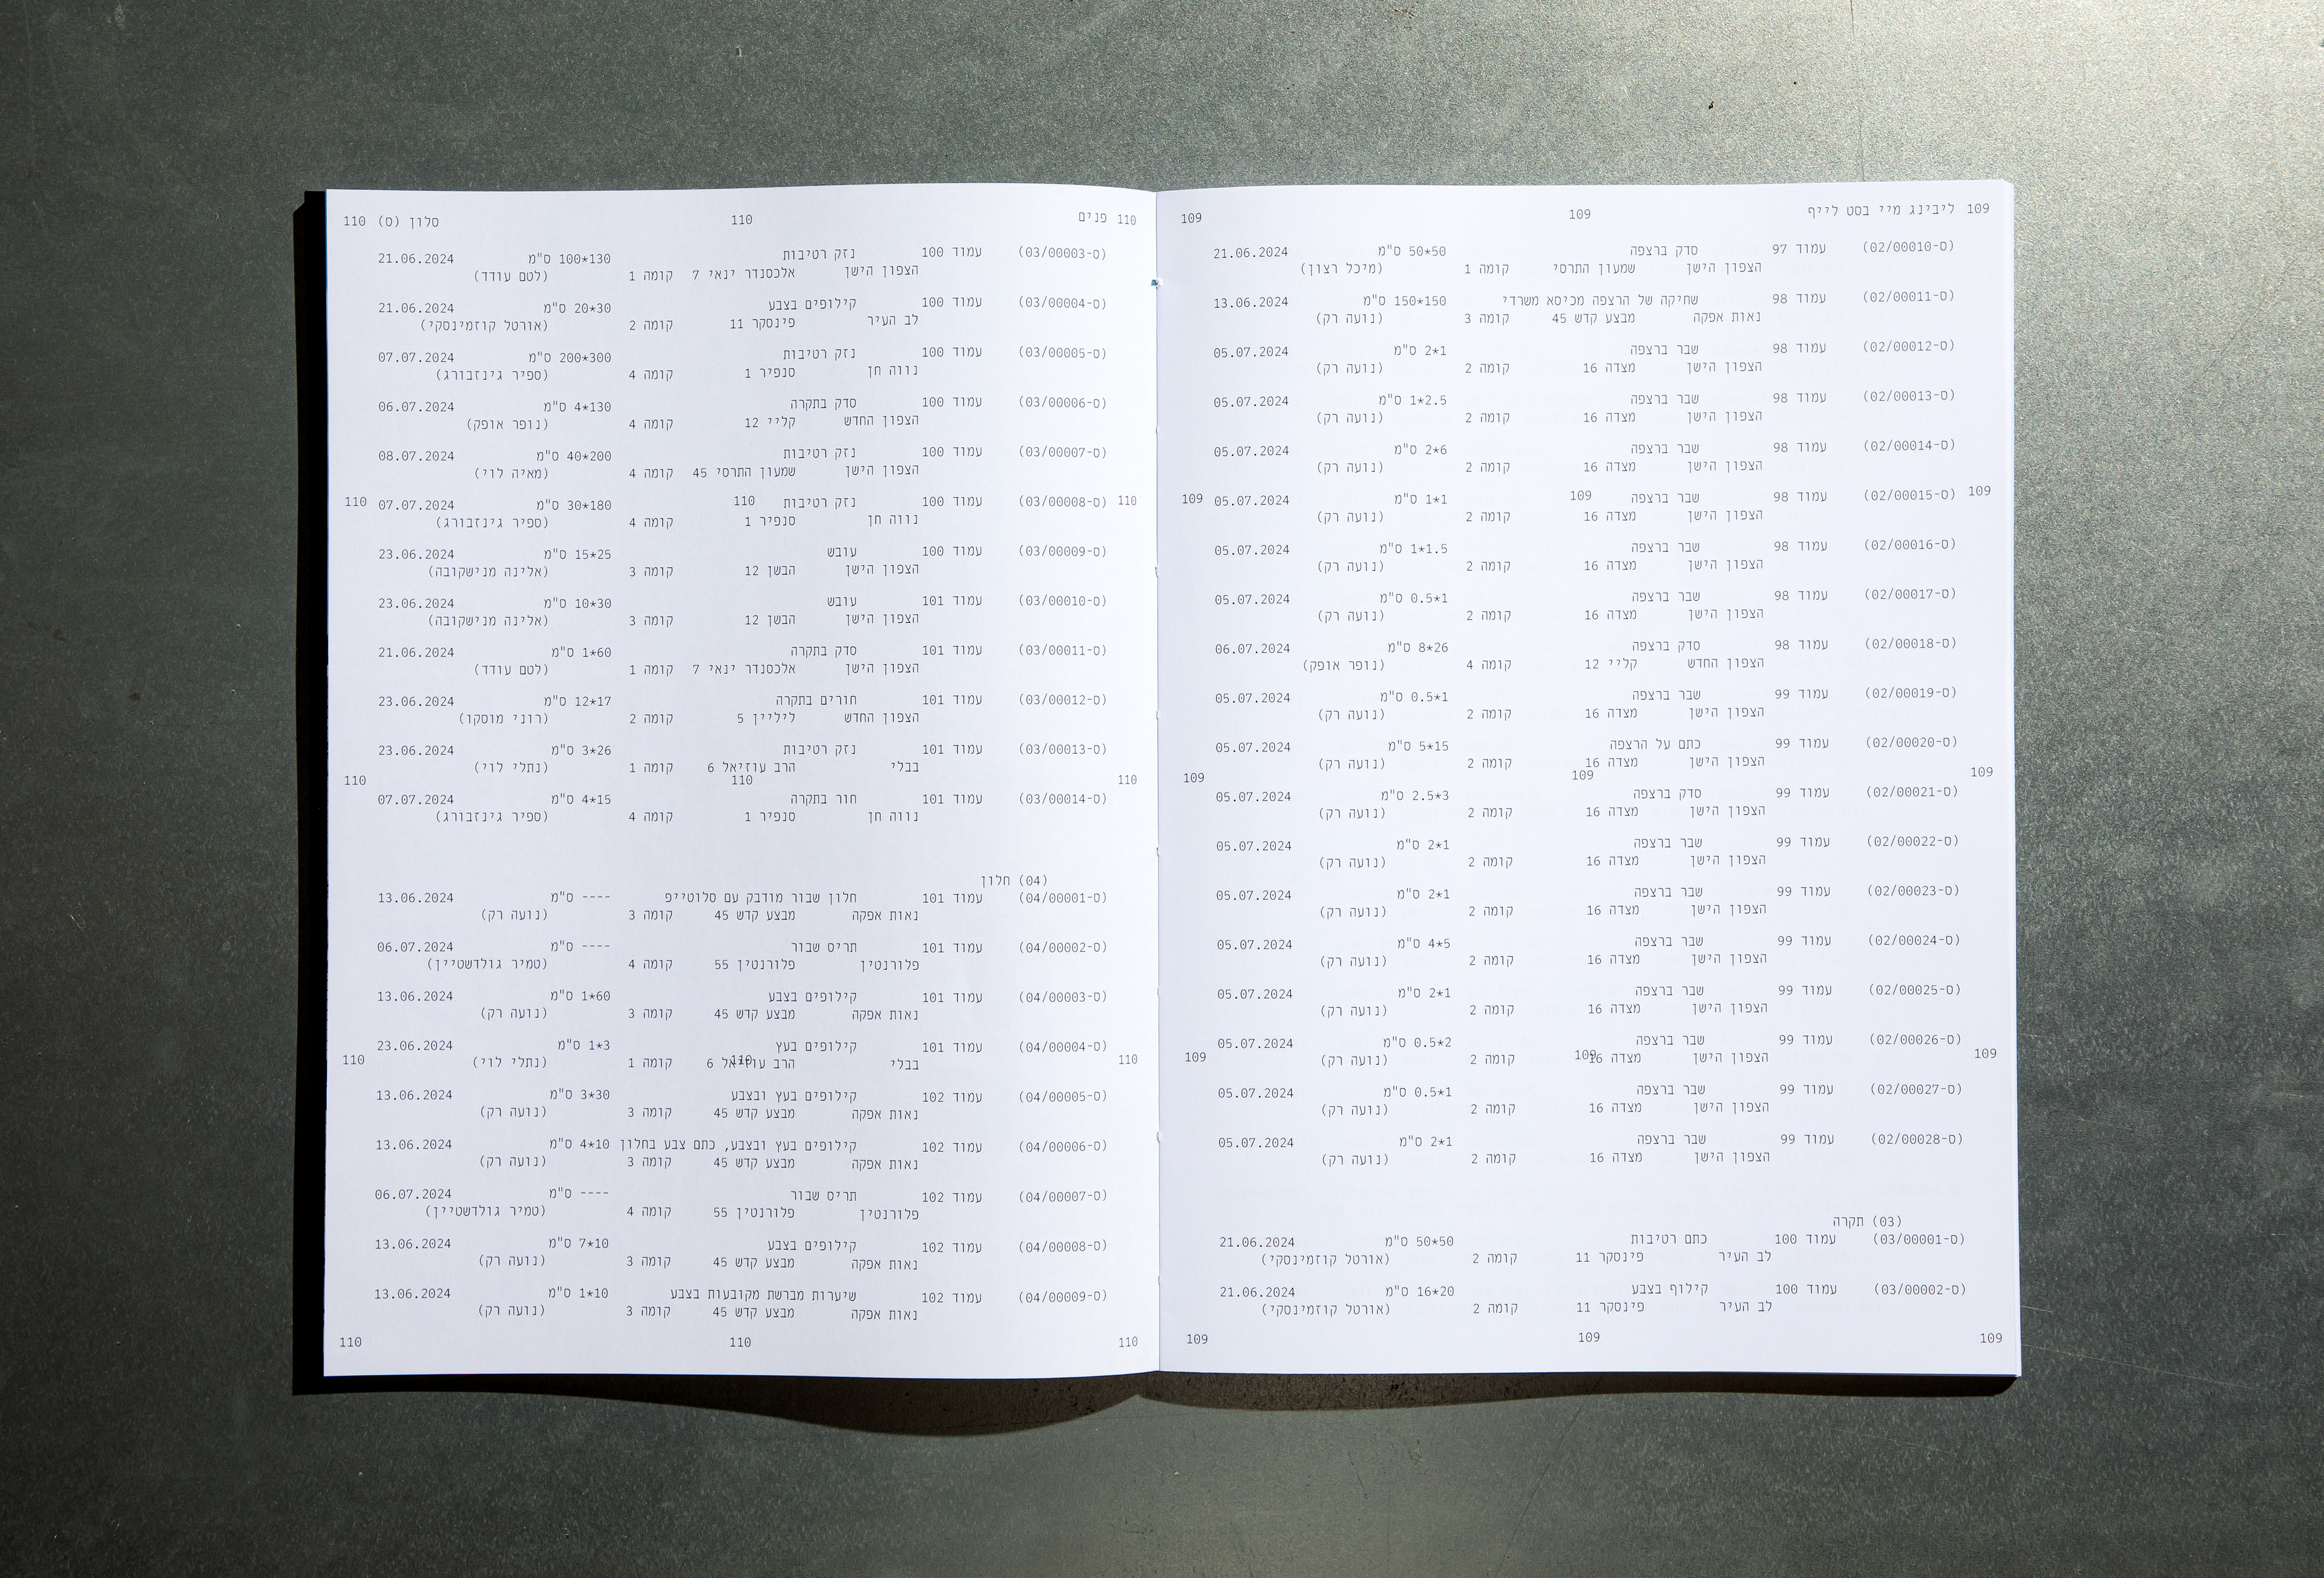 109 ליבינג מיי בסט לייף 109 109
(ס-02/00010) עמוד 97 סדק ברצפה 50*50 ס"מ 21.06.2024
הצפון הישן שמעון התרסי קומה 1 (מיכל רצון)
(ס-02/00011) עמוד 98 שחיקה של הרצפה מכיסא משרדי 150*150 ס"מ 13.06.2024
נאות אפקה מבצע קדש 45 קומה 3 (נועה רק)
(ס-02/00012) עמוד 98 שבר ברצפה 2*1 ס"מ 05.07.2024
הצפון הישן מצדה 16 קומה 2 (נועה רק)
(ס-02/00013) עמוד 98 שבר ברצפה 1*2.5 ס"מ 05.07.2024
הצפון הישן מצדה 16 קומה 2 (נועה רק)
(ס-02/00014) עמוד 98 שבר ברצפה 2*6 ס"מ 05.07.2024
הצפון הישן מצדה 16 קומה 2 (נועה רק)
109 (ס-02/00015) עמוד 98 שבר ברצפה 109 1*1 ס"מ 05.07.2024 109
הצפון הישן מצדה 16 קומה 2 (נועה רק)
(ס-02/00016) עמוד 98 שבר ברצפה 1*1.5 ס"מ 05.07.2024
הצפון הישן מצדה 16 קומה 2 (נועה רק)
(ס-02/00017) עמוד 98 שבר ברצפה 0.5*1 ס"מ 05.07.2024
הצפון הישן מצדה 16 קומה 2 (נועה רק)
(ס-02/00018) עמוד 98 סדק ברצפה 8*26 ס"מ 06.07.2024
הצפון החדש קליי 12 קומה 4 (נופר אופק)
(ס-02/00019) עמוד 99 שבר ברצפה 0.5*1 ס"מ 05.07.2024
הצפון הישן מצדה 16 קומה 2 (נועה רק)
(ס-02/00020) עמוד 99 כתם על הרצפה 5*15 ס"מ 05.07.2024
הצפון הישן מצדה 16 קומה 2 (נועה רק)
109 109 109
(ס-02/00021) עמוד 99 סדק ברצפה 2.5*3 ס"מ 05.07.2024
הצפון הישן מצדה 16 קומה 2 (נועה רק)
(ס-02/00022) עמוד 99 שבר ברצפה 2*1 ס"מ 05.07.2024
הצפון הישן מצדה 16 קומה 2 (נועה רק)
(ס-02/00023) עמוד 99 שבר ברצפה 2*1 ס"מ 05.07.2024
הצפון הישן מצדה 16 קומה 2 (נועה רק)
(ס-02/00024) עמוד 99 שבר ברצפה 4*5 ס"מ 05.07.2024
הצפון הישן מצדה 16 קומה 2 (נועה רק)
(ס-02/00025) עמוד 99 שבר ברצפה 2*1 ס"מ 05.07.2024
הצפון הישן מצדה 16 קומה 2 (נועה רק)
(ס-02/00026) עמוד 99 שבר ברצפה 0.5*2 ס"מ 05.07.2024
109 הצפון הישן מצדה 16 109 קומה 2 (נועה רק) 109
(ס-02/00027) עמוד 99 שבר ברצפה 0.5*1 ס"מ 05.07.2024
הצפון הישן מצדה 16 קומה 2 (נועה רק)
(ס-02/00028) עמוד 99 שבר ברצפה 2*1 ס"מ 05.07.2024
הצפון הישן מצדה 16 קומה 2 (נועה רק)
(03) תקרה
(ס-03/00001) עמוד 100 כתם רטיבות 50*50 ס"מ 21.06.2024
לב העיר פינסקר 11 קומה 2 (אורטל קוזמינסקי)
(ס-03/00002) עמוד 100 קילוף בצבע 16*20 ס"מ 21.06.2024
לב העיר פינסקר 11 קומה 2 (אורטל קוזמינסקי)
109 109 109
110 פנים 110 סלון (ס) 110
(ס-03/00003) עמוד 100 נזק רטיבות 100*130 ס"מ 21.06.2024
הצפון הישן אלכסנדר ינאי 7 קומה 1 (לטם עודד)
(ס-03/00004) עמוד 100 קילופים בצבע 20*30 ס"מ 21.06.2024
לב העיר פינסקר 11 קומה 2 (אורטל קוזמינסקי)
(ס-03/00005) עמוד 100 נזק רטיבות 200*300 ס"מ 07.07.2024
נווה חן סנפיר 1 קומה 4 (ספיר גינזבורג)
(ס-03/00006) עמוד 100 סדק בתקרה 4*130 ס"מ 06.07.2024
הצפון החדש קליי 12 קומה 4 (נופר אופק)
(ס-03/00007) עמוד 100 נזק רטיבות 40*200 ס"מ 08.07.2024
הצפון הישן שמעון התרסי 45 קומה 4 (מאיה לוי)
110 (ס-03/00008) עמוד 100 נזק רטיבות 110 30*180 ס"מ 07.07.2024 110
נווה חן סנפיר 1 קומה 4 (ספיר גינזבורג)
(ס-03/00009) עמוד 100 עובש 15*25 ס"מ 23.06.2024
הצפון הישן הבשן 12 קומה 3 (אלינה מנישקובה)
(ס-03/00010) עמוד 101 עובש 10*30 ס"מ 23.06.2024
הצפון הישן הבשן 12 קומה 3 (אלינה מנישקובה)
(ס-03/00011) עמוד 101 סדק בתקרה 1*60 ס"מ 21.06.2024
הצפון הישן אלכסנדר ינאי 7 קומה 1 (לטם עודד)
(ס-03/00012) עמוד 101 חורים בתקרה 12*17 ס"מ 23.06.2024
הצפון החדש ליליין 5 קומה 2 (רוני מוסקו)
(ס-03/00013) עמוד 101 נזק רטיבות 3*26 ס"מ 23.06.2024
בבלי הרב עוזיאל 6 קומה 1 (נתלי לוי)
110 110 110
(ס-03/00014) עמוד 101 חור בתקרה 4*15 ס"מ 07.07.2024
נווה חן סנפיר 1 קומה 4 (ספיר גינזבורג)
(04) חלון
(ס-04/00001) עמוד 101 חלון שבור מודבק עם סלוטייפ ---- ס"מ 13.06.2024
נאות אפקה מבצע קדש 45 קומה 3 (נועה רק)
(ס-04/00002) עמוד 101 תריס שבור ---- ס"מ 06.07.2024
פלורנטין פלורנטין 55 קומה 4 (טמיר גולדשטיין)
(ס-04/00003) עמוד 101 קילופים בצבע 1*60 ס"מ 13.06.2024
נאות אפקה מבצע קדש 45 קומה 3 (נועה רק)
(ס-04/00004) עמוד 101 קילופים בעץ 1*3 ס"מ 23.06.2024
110 בבלי הרב עוזיאל 6 110 קומה 1 (נתלי לוי) 110
(ס-04/00005) עמוד 102 קילופים בעץ ובצבע 3*30 ס"מ 13.06.2024
נאות אפקה מבצע קדש 45 קומה 3 (נועה רק)
(ס-04/00006) עמוד 102 קילופים בעץ ובצבע, כתם צבע בחלון 4*10 ס"מ 13.06.2024
נאות אפקה מבצע קדש 45 קומה 3 (נועה רק)
(ס-04/00007) עמוד 102 תריס שבור ---- ס"מ 06.07.2024
פלורנטין פלורנטין 55 קומה 4 (טמיר גולדשטיין)
(ס-04/00008) עמוד 102 קילופים בצבע 7*10 ס"מ 13.06.2024
נאות אפקה מבצע קדש 45 קומה 3 (נועה רק)
(ס-04/00009) עמוד 102 שיערות מברשת מקובעות בצבע 1*10 ס"מ 13.06.2024
נאות אפקה מבצע קדש 45 קומה 3 (נועה רק)
110 110 110